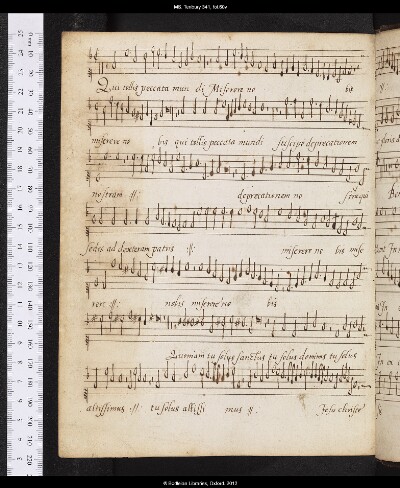 MS. Tenbury 341, fol. 50v
Qui tollis peccata mun di Miserere no bis
miserere no bis qui tollis peccata mundi suscipe deprecationem
nostram :||: deprecationem no stram qui
sedes ad dexteram patris :||: miserere no bis mise
rere :||: nobis miserere no bis
Quoniam tu solus sanctus tu solus dominus tu solus
altissimus :||: tu solus altissi mus :||: Jesu christe
© Bodleian Libraries, Oxford, 2012